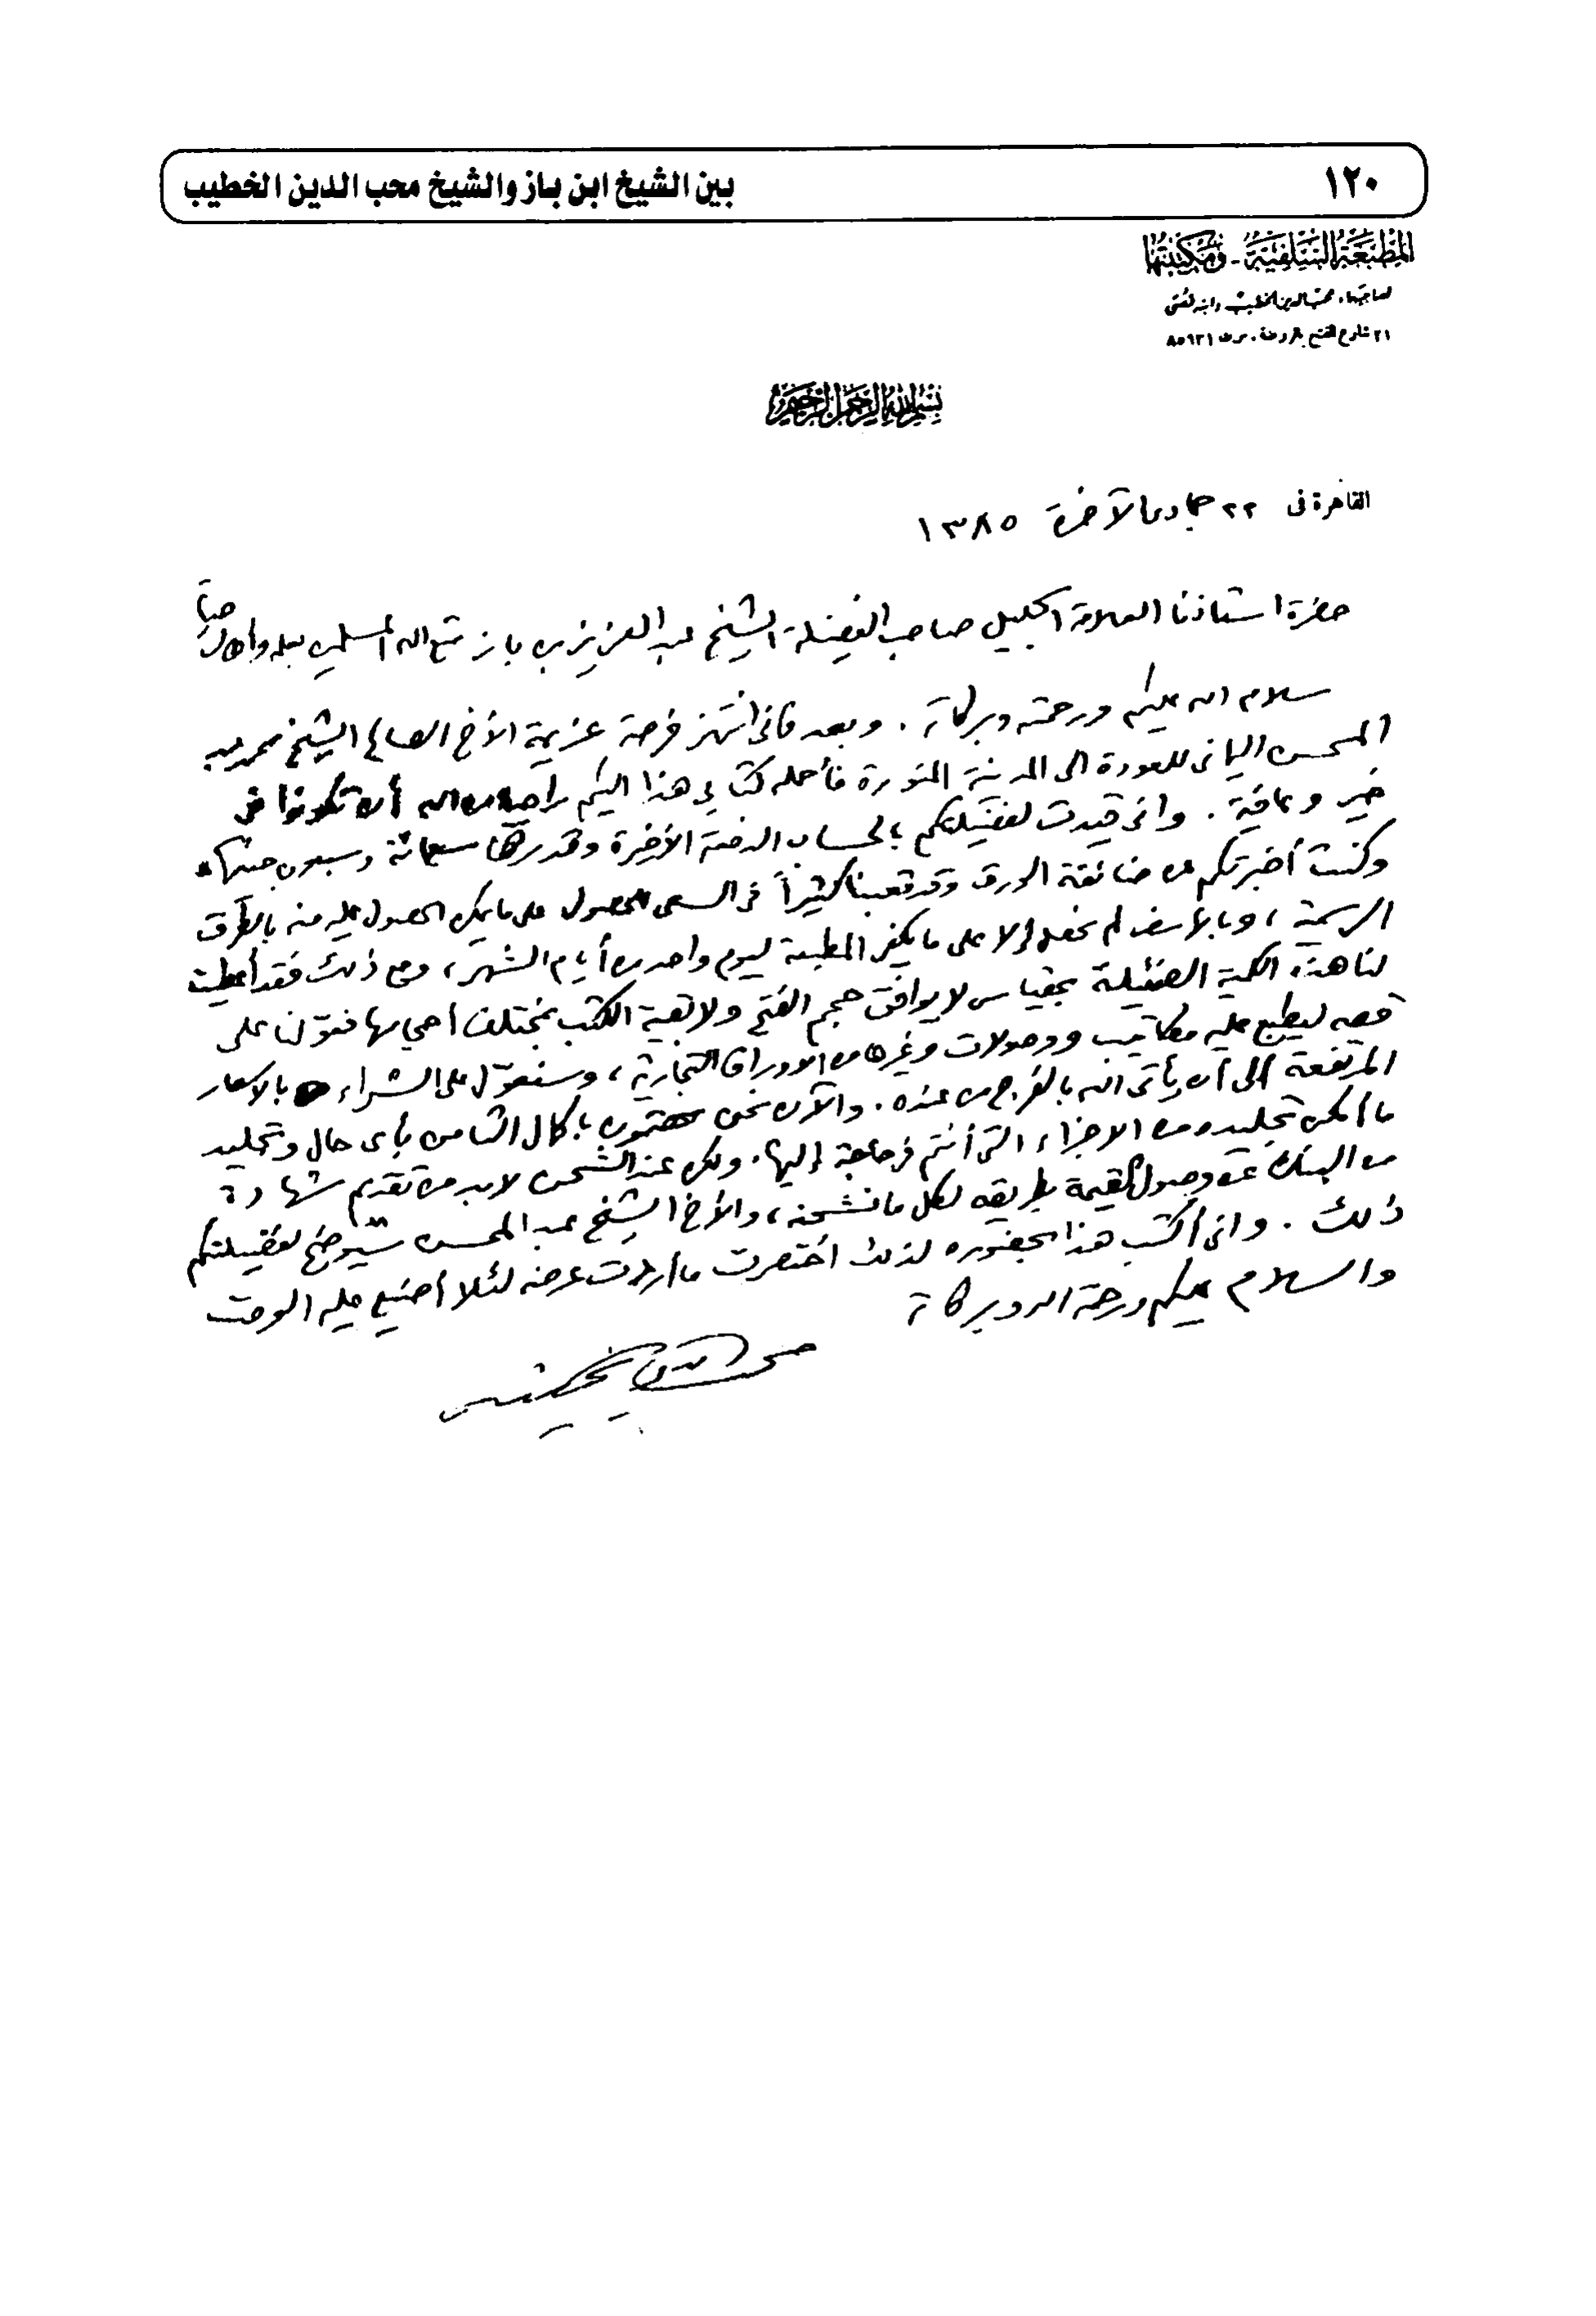 ١٢٠
بين الشيخ ابن باز والشيخ محب الدين الخطيب
المطبعة السلفية - ومكتبتها
لصاحبها: محب الدين الخطيب وابنه قصي
٢١ شارع الفتح بالروضة.
بسم الله الرحمن الرحيم
القاهرة فى ٢٢ جمادى الآخرة ١٣٨٥
حضرة استاذنا العلامة الجليل صاحب الفضيلة الشيخ عبد العزيز بن باز متع الله المسلمين بعلمه
سلام الله عليكم ورحمته وبركاته. وبعد فانى انتهز فرصة عزيمة الأخ الصالح الشيخ محمد عبد
المحسن اليمانى للعودة الى المدينة المنورة فأحمله كتابى هذا اليكم راجيا من الله أن تكونوا فى
خير وعافية. وانى قيدت لفضيلتكم بالحساب الدفعة الأخيرة وقدرها سبعمائة وسبعون جنيها
وكنت أخبرتكم عن ضائقة الورق وقد تعبنا كثيراً فى السعى للحصول على ما يمكن الحصول عليه منه بالطرق
الرسمية، وبالأسف لم نحصل إلا على ما يكفى المطبعة ليوم واحد من أيام الشهر، ومع ذلك فقد أعطيت
لنا هذه الكمية الضئيلة بمقياس لا يوافق حجم الفتح ولا بقية الكتب بمختلف احجامها
قصه ليطبع عليه مكاتيب ووصولات وغيرها من الاوراق التجارية، وسنعوّل على الشراء بالاسعار
المرتفعة الى أن يأتى الله بالفرج من عنده. والآن نحن مهتمون باكمال الثامن بأى حال وتجليد
ما أمكن تجليده من الاجزاء التى أنتم فى حاجة إليها. ولكن عند الشحن لا بد من تقديم شهادة
من البنك عن وصول القيمة بطريقه لكل ما نشحنه، والأخ الشيخ عبد المحسن سيوضح لفضيلتكم
ذلك. وانى أكتب هذا بحضوره لذلك اختصرت ما أردت عرضه لئلا أضيع عليه الوقت
والسلام عليكم ورحمة الله وبركاته
محب الدين الخطيب